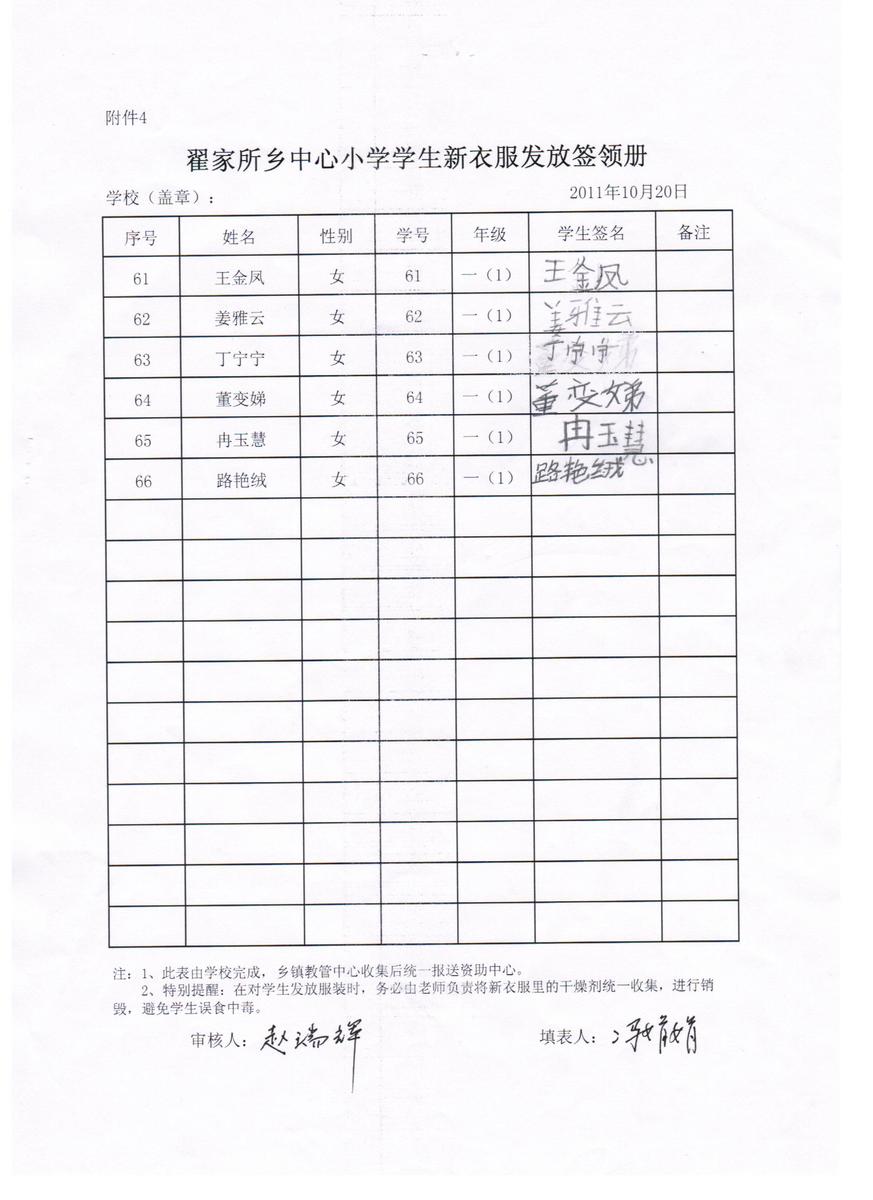 附件4
翟家所乡中心小学学生新衣服发放签领册
学校（盖章）： 2011年10月20日
序号 姓名 性别 学号 年级 学生签名 备注
61 王金凤 女 61 一（1） 王金凤
62 姜雅云 女 62 一（1） 姜雅云
63 丁宁宁 女 63 一（1） 丁宁宁
64 董变娣 女 64 一（1） 董变娣
65 冉玉慧 女 65 一（1） 冉玉慧
66 路艳绒 女 66 一（1） 路艳绒
注：1、此表由学校完成，乡镇教管中心收集后统一报送资助中心。
2、特别提醒：在对学生发放服装时，务必由老师负责将新衣服里的干燥剂统一收集，进行销
毁，避免学生误食中毒。
审核人：赵瑞辉 填表人：